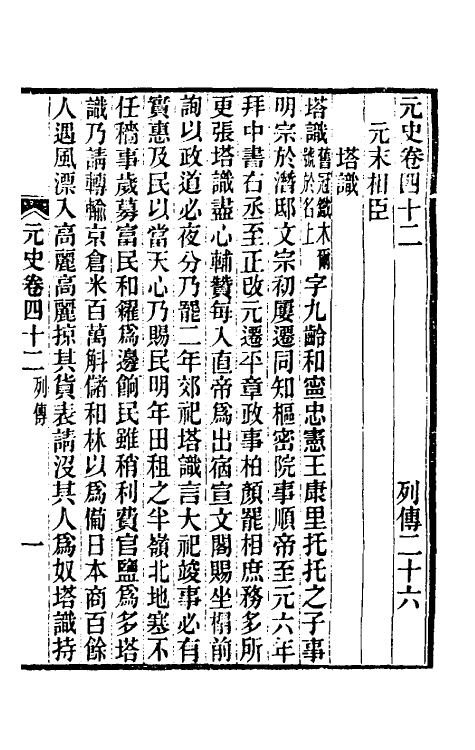 元史卷四十二　列傳二十六
元末相臣
塔識
塔識舊冠鐵木爾號於名上字九齡和寧忠憲王康里托托之子事
明宗於潛邸文宗初屢遷同知樞密院事順帝至元六年
拜中書右丞至正改元遷平章政事柏顏罷相庶務多所
更張塔識盡心輔贊每入直帝爲出宿宣文閣賜坐榻前
詢以政道必夜分乃罷二年郊祀塔識言大祀竣事必有
實惠及民以當天心乃賜民明年田租之半嶺北地寒不
任穡事歲募富民和糴爲邊餉民雖稍利費官鹽爲多塔
識乃請轉輸京倉米百萬斛儲和林以爲備日本商百餘
人遇風漂入高麗高麗掠其貨表請沒其人爲奴塔識持
元史卷四十二　列傳　一